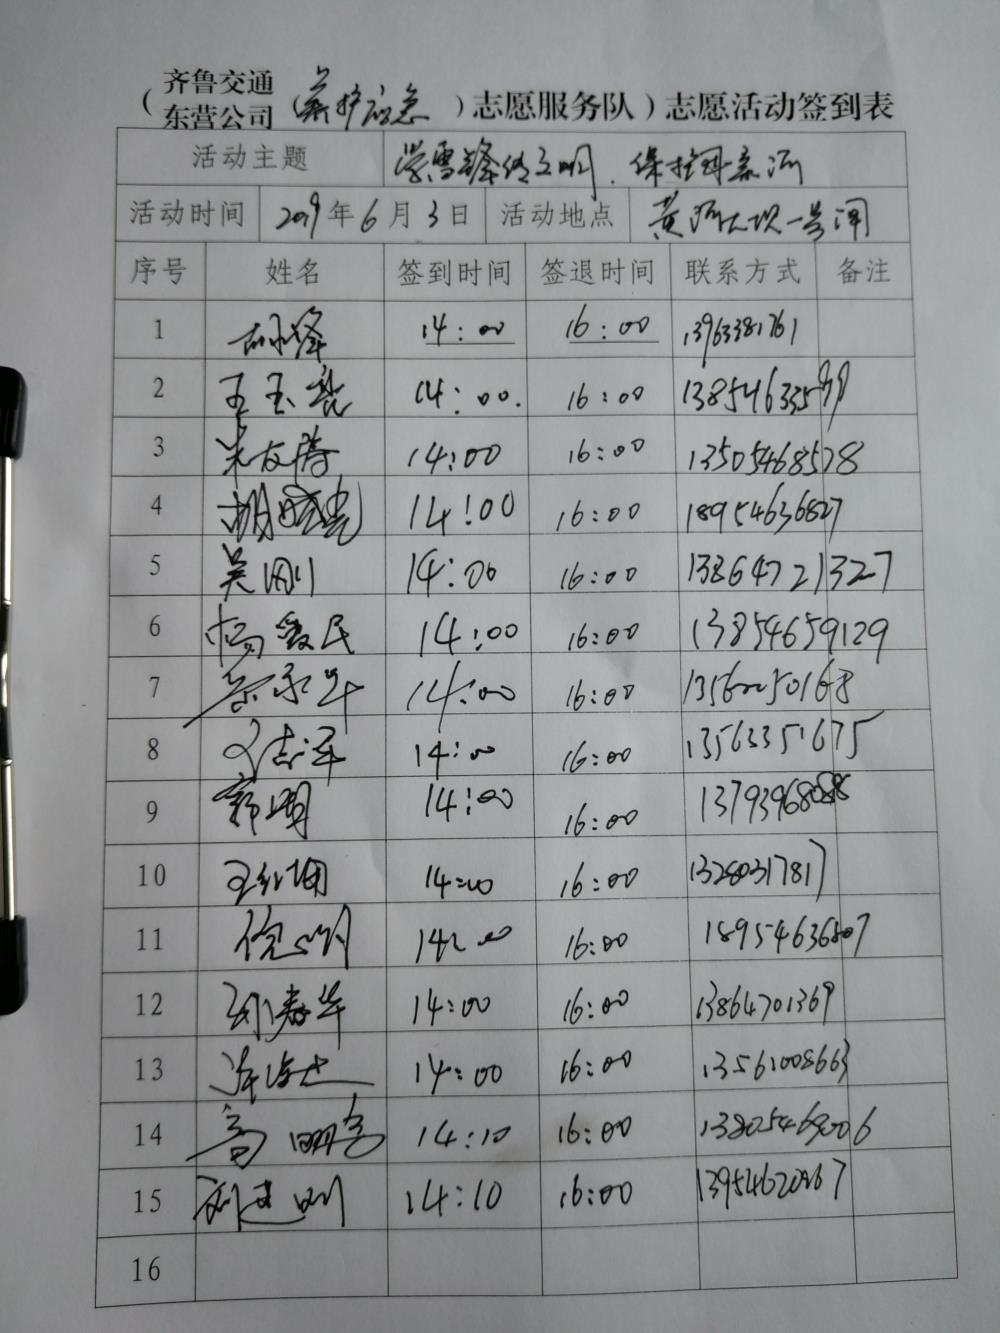 （齐鲁交通东营公司（养护应急）志愿服务队）志愿活动签到表
活动主题 学雷锋传文明、保护母亲河
活动时间 2019年6月3日 活动地点 黄河大坝一号闸
序号 姓名 签到时间 签退时间 联系方式 备注
1 14:00 16:00 13963381761
2 王玉亮 14:00. 16:00 13854633599
3 朱友涛 14:00 16:00 13505468578
4 胡晓亮 14:00 16:00 18954636827
5 吴刚 14:00 16:00 13864721327
6 杨爱民 14:00 16:00 13854659129
7 14:00 16:00
8 14:00 16:00 13563351675
9 郭明 14:00 16:00 13793968088
10 14:00 16:00 13280317817
11 14:00 16:00 18954636807
12 14:00 16:00 13864701369
13 14:00 16:00 13561008663
14 高鹏 14:10 16:00
15 刘建刚 14:10 16:00
16